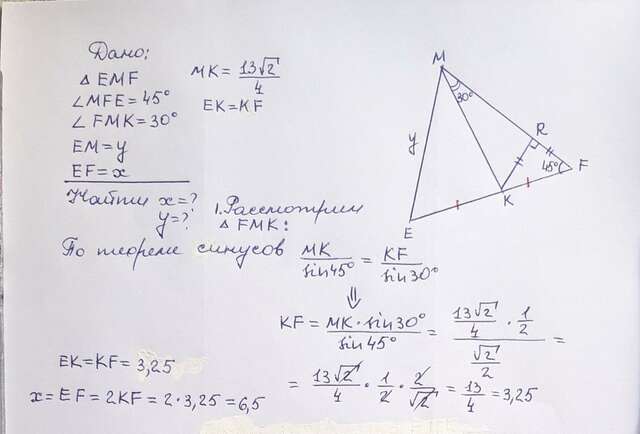 Дано:
△ EMF
∠MFE = 45°
∠ FMK = 30°
EM = y
EF = x
MK = 13√2/4
EK = KF
Найти x = ?
y = ?
1. Рассмотрим
△ FMK:
По теореме синусов MK/sin45° = KF/sin30°
⇓
KF = MK·sin30°/sin45° = (13√2/4 · 1/2)/(√2/2) =
= 13√2/4 · 1/2 · 2/√2 = 13/4 = 3,25
EK = KF = 3,25
x = EF = 2KF = 2·3,25 = 6,5
M
30°
R
y
45°
F
K
E